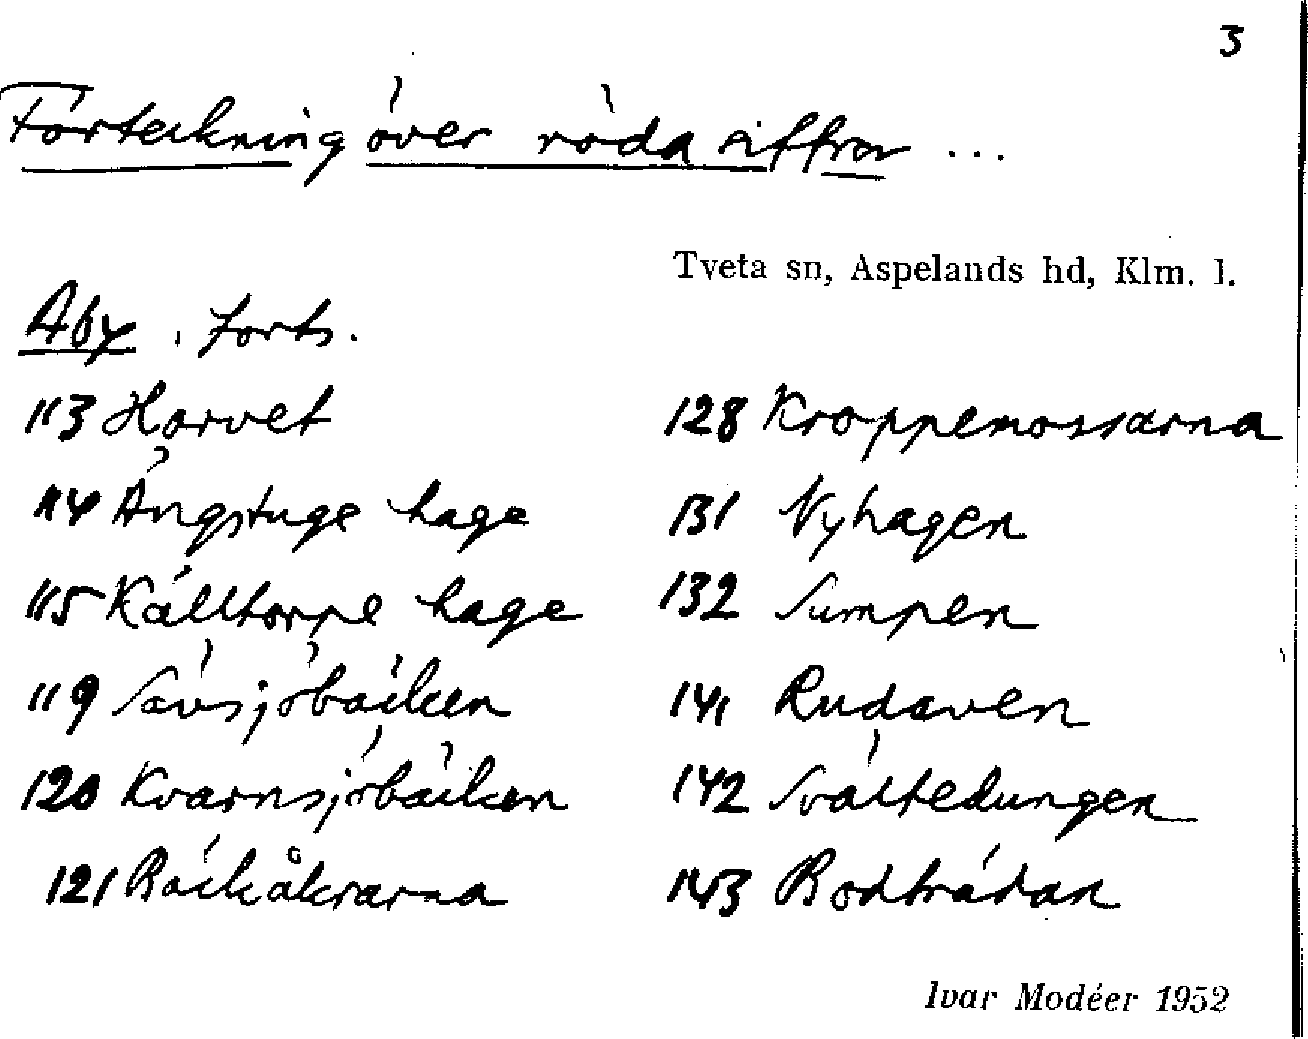 3
Förteckning över röda siffror ...
Tveta sn, Aspelands hd, Klm. l.
Åby, forts.
113 Harvet
114 Ängstuge hage
115 Källtorpe hage
119 Sävsjöbäcken
120 Kvarnsjöbäcken
121 Bäckåkrarna
128 Kroppemossarna
131 Nyhagen
132 Sumpen
141 Rudaven
142 Svältedungen
143 Bodträdan
Ivar Modéer 1952